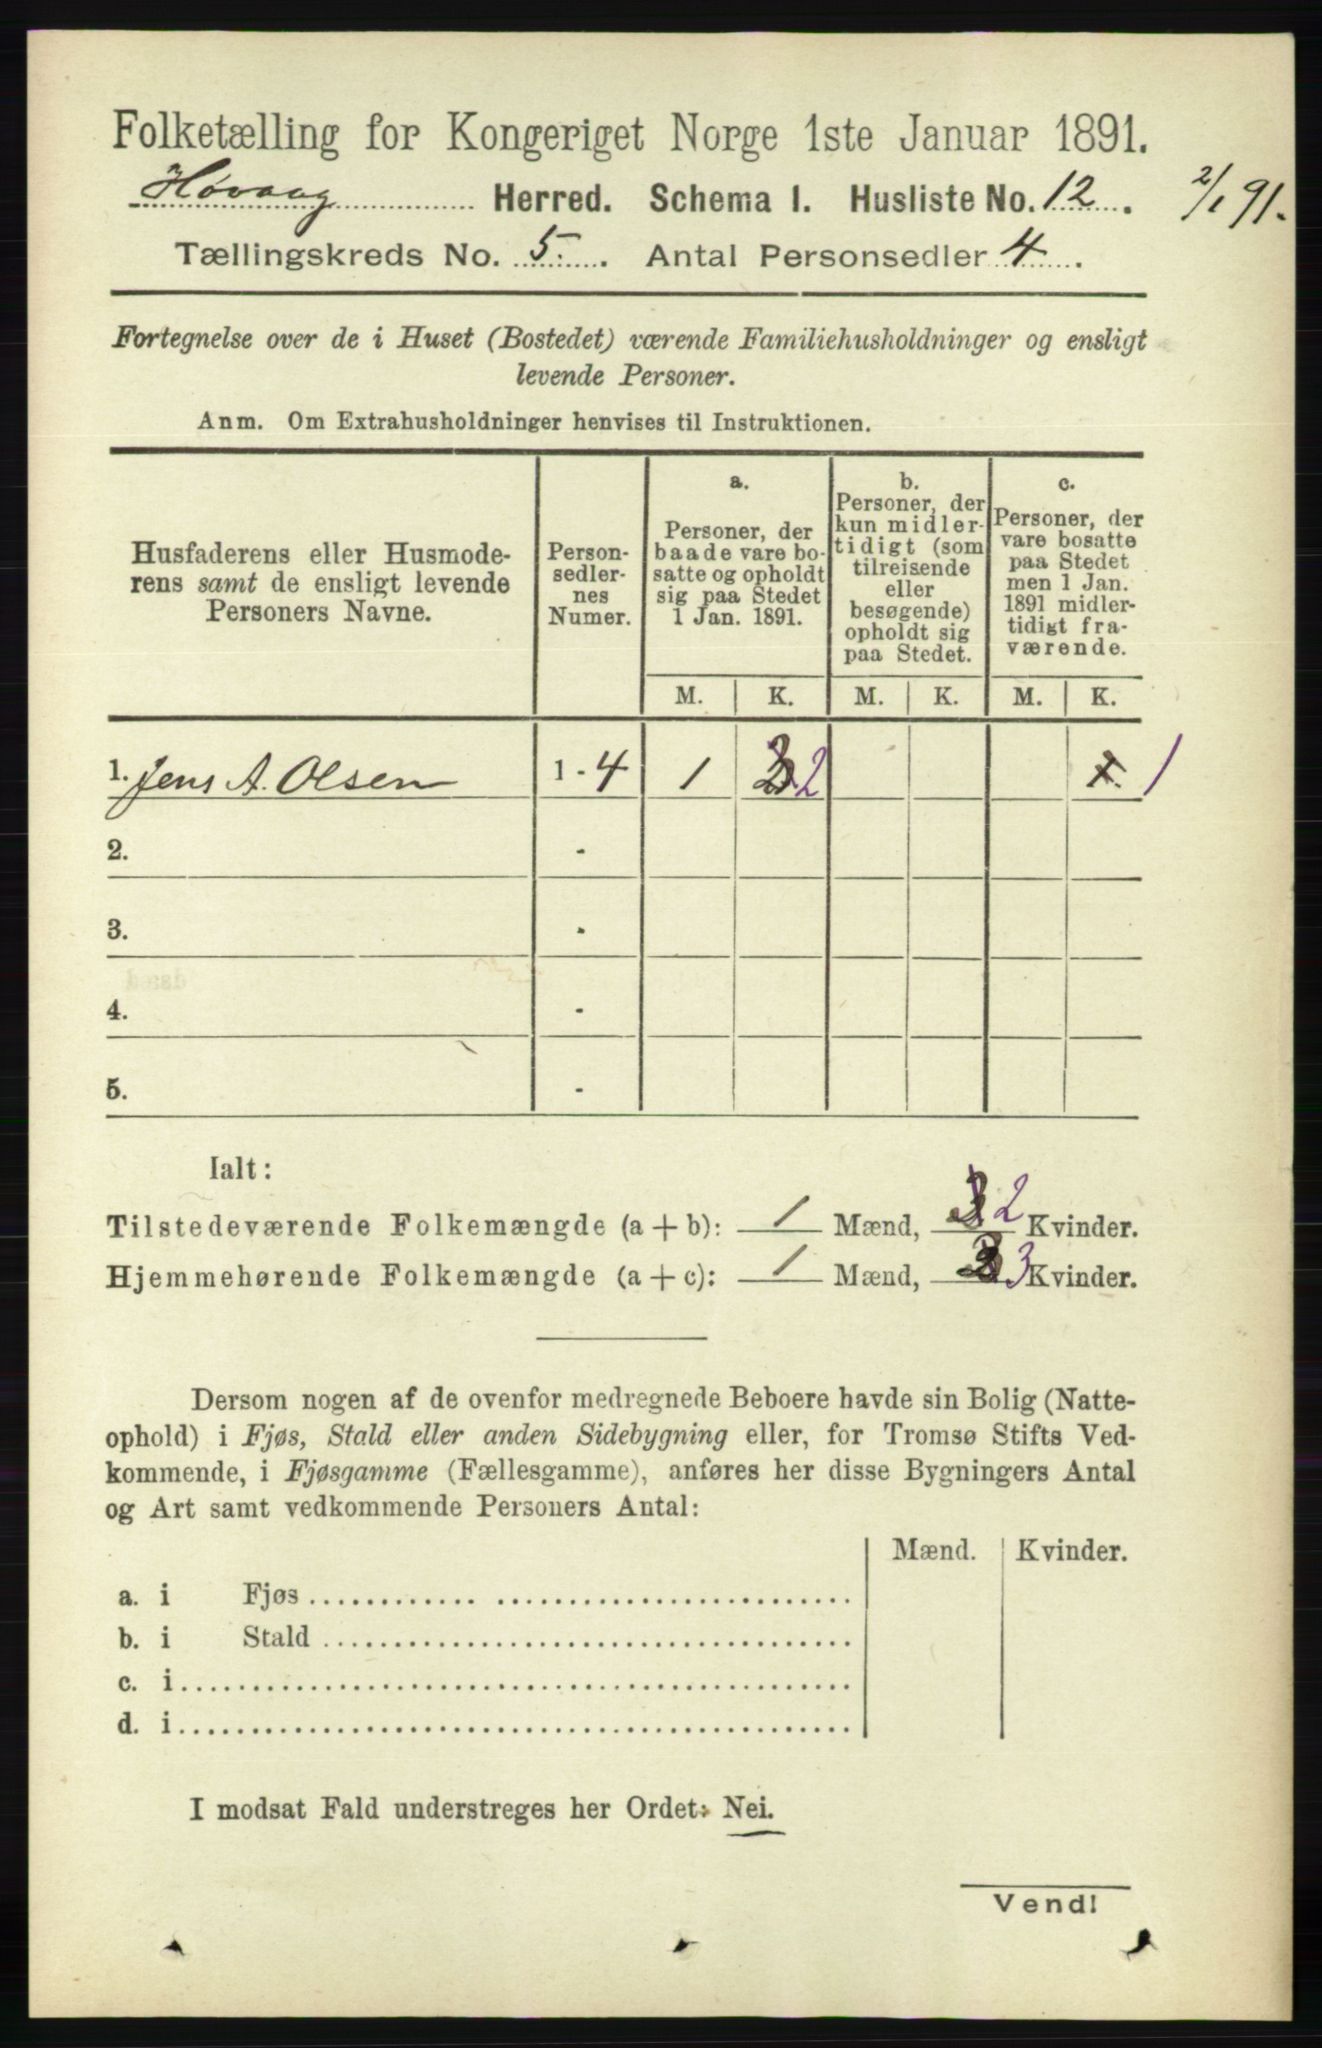 Folketælling for Kongeriget Norge 1ste Januar 1891.
Høvaag Herred. Schema 1. Husliste No. 12. 2/1 91.
Tællingskreds No. 5. Antal Personsedler 4.
Fortegnelse over de i Huset (Bostedet) værende Familiehusholdninger og ensligt
levende Personer.
Anm. Om Extrahusholdninger henvises til Instruktionen.
Husfaderens eller Husmode-
rens samt de ensligt levende
Personers Navne.
Person-
sedler-
nes
Numer.
a.
Personer, der
baade vare bo-
satte og opholdt
sig paa Stedet
1 Jan. 1891.
b.
Personer, der
kun midler-
tidigt (som
tilreisende
eller
besøgende)
opholdt sig
paa Stedet.
c.
Personer, der
vare bosatte
paa Stedet
men 1 Jan.
1891 midler-
tidigt fra-
værende.
M. K. M. K. M. K.
1. Jens A. Olsen 1 - 4 1 2 1
2. -
3. -
4. -
5. -
Ialt:
Tilstedeværende Folkemængde (a + b): 1 Mænd, 2 Kvinder.
Hjemmehørende Folkemængde (a + c): 1 Mænd, 3 Kvinder.
Dersom nogen af de ovenfor medregnede Beboere havde sin Bolig (Natte-
ophold) i Fjøs, Stald eller anden Sidebygning eller, for Tromsø Stifts Ved-
kommende, i Fjøsgamme (Fællesgamme), anføres her disse Bygningers Antal
og Art samt vedkommende Personers Antal:
Mænd. Kvinder.
a. i Fjøs
b. i Stald
c. i
d. i
I modsat Fald understreges her Ordet: Nei.
Vend!